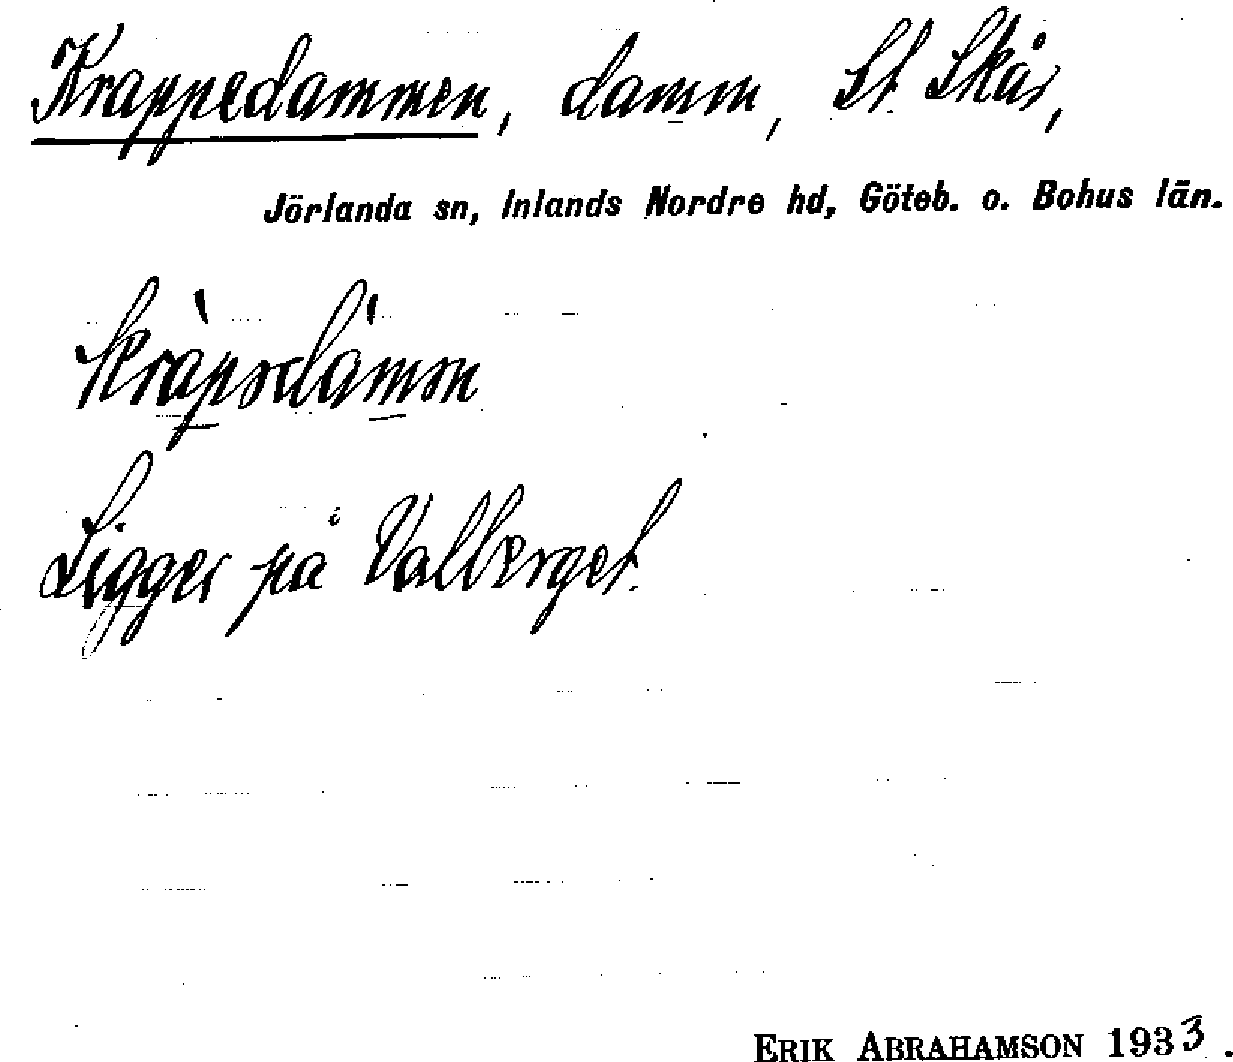 Krappedammen, damm, St. Skår,
Jörlanda sn, Inlands Nordre hd, Göteb. o. Bohus län.
Ligger på Valberget.
ERIK ABRAHAMSON 1933.